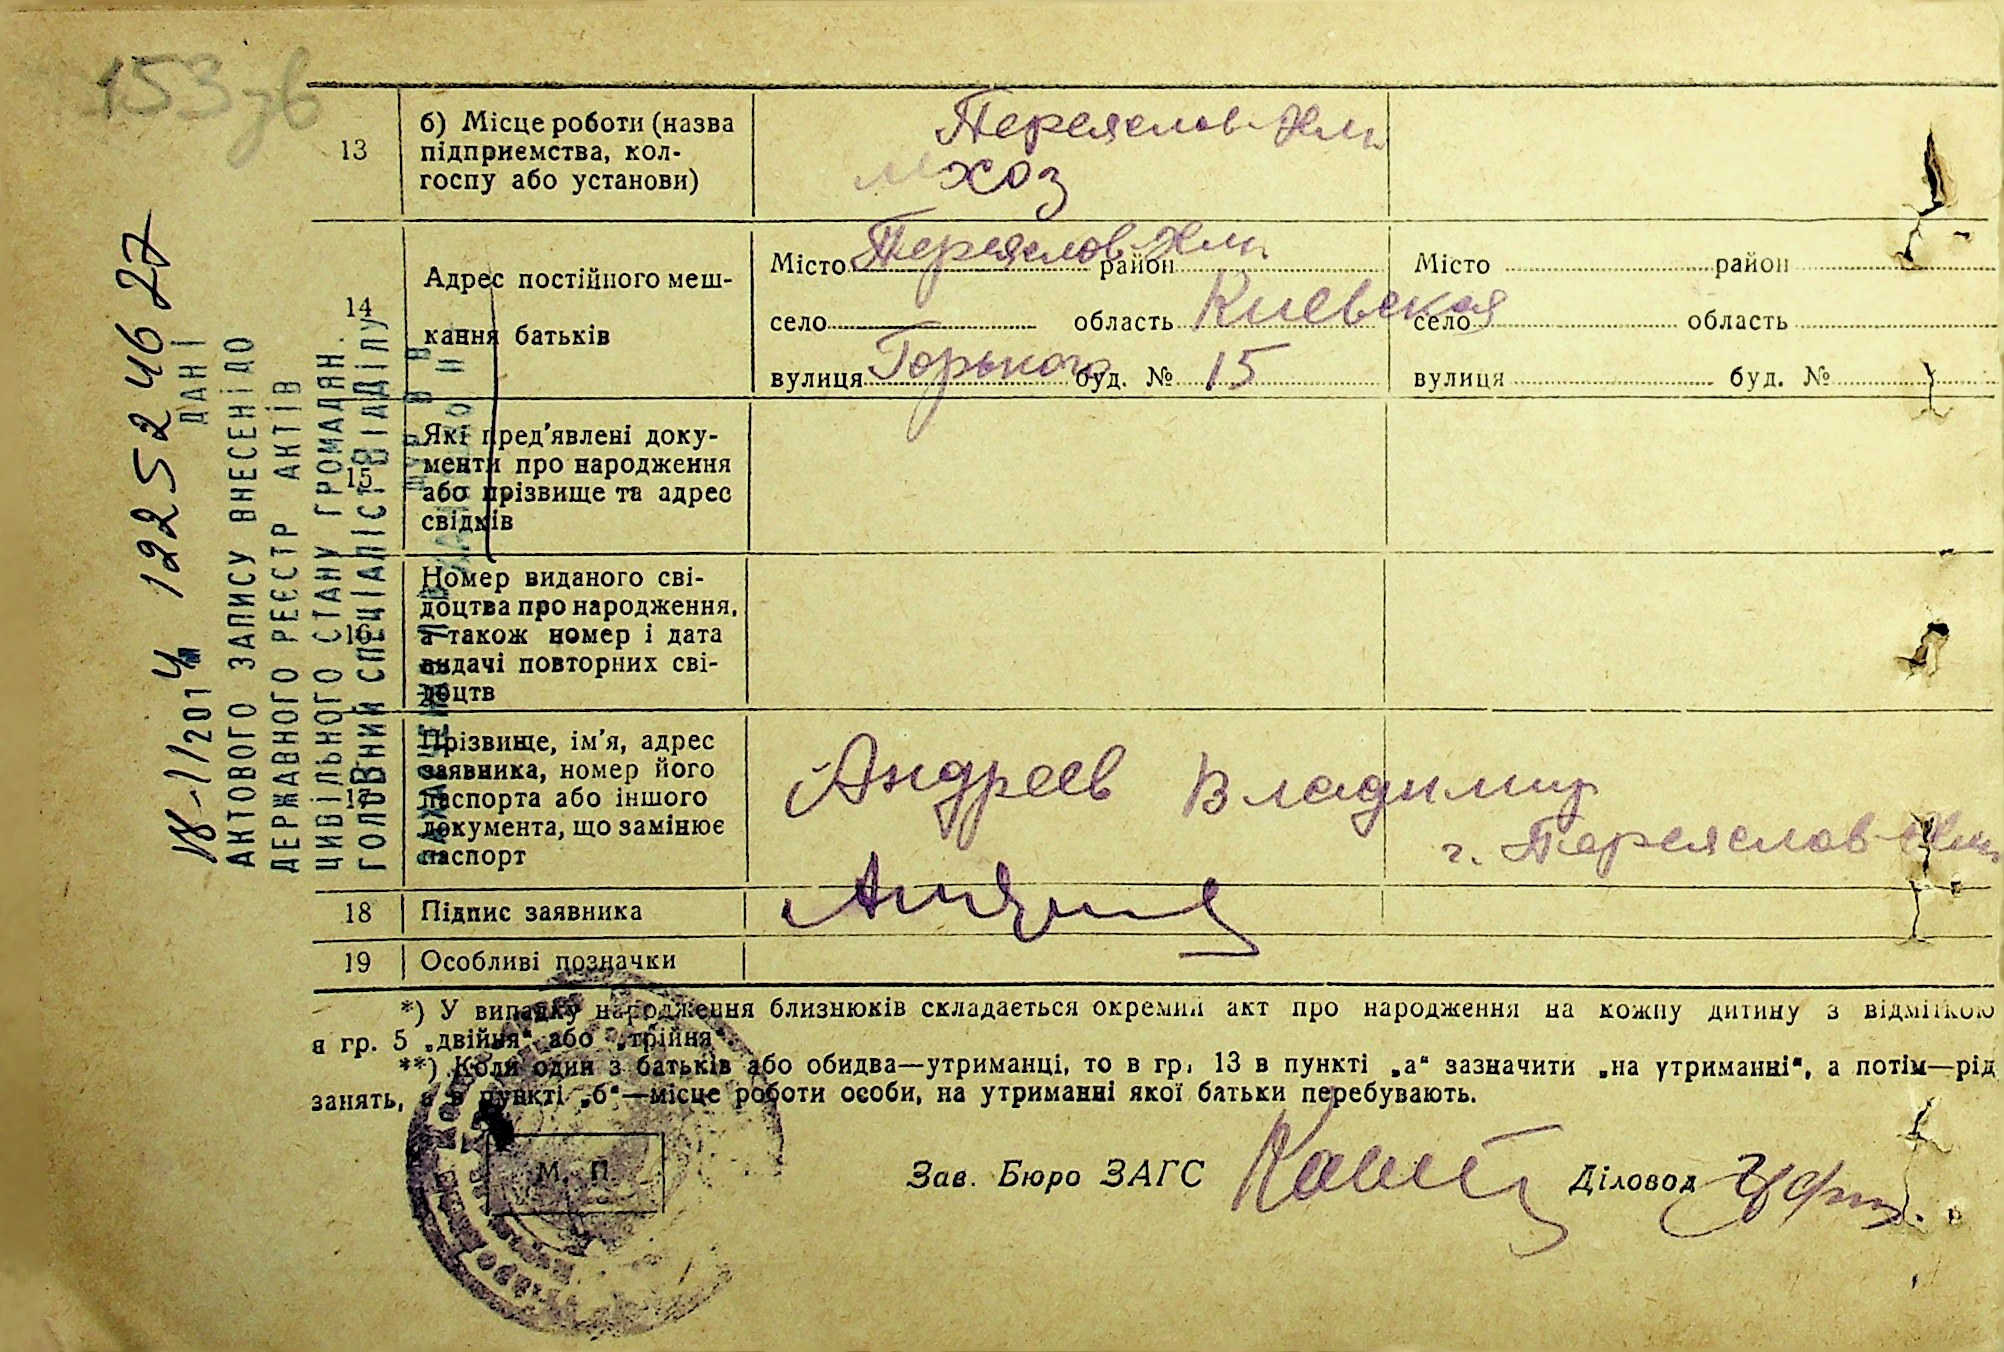 153 зв
13
б) Місце роботи (назва
підприємства, кол-
госпу або установи)
Переяслов Хм.
мхоз
14
Адрес постійного меш-
кання батьків
Місто Переяслов Хм. район
село область Киевская
вулиця Горького буд. № 15
Місто район
село область
вулиця буд. №
15
Які пред'явлені доку-
менти про народження
або прізвище та адрес
свідків
16
Номер виданого сві-
доцтва про народження,
а також номер і дата
видачі повторних сві-
доцтв
17
Прізвище, ім'я, адрес
заявника, номер його
паспорта або іншого
документа, що замінює
паспорт
Андреев Владимир
г. Переяслов Хм.
18 Підпис заявника
19 Особливі позначки
*) У випадку народження близнюків складається окремий акт про народження на кожну дитину з відміткою
в гр. 5 „двійня“ або „трійня“.
**) Коли один з батьків або обидва—утриманці, то в гр. 13 в пункті „а“ зазначити „на утриманні“, а потім—рід
занять, а в пункті „б“—місце роботи особи, на утриманні якої батьки перебувають.
М. П.
Зав. Бюро ЗАГС
Діловод
122524627
ДАНІ
АКТОВОГО ЗАПИСУ ВНЕСЕНІ ДО
ДЕРЖАВНОГО РЕЄСТР АКТІВ
ЦИВІЛЬНОГО СТАНУ ГРОМАДЯН.
ГОЛОВНИЙ СПЕЦІАЛІСТ ВІДДІЛУ